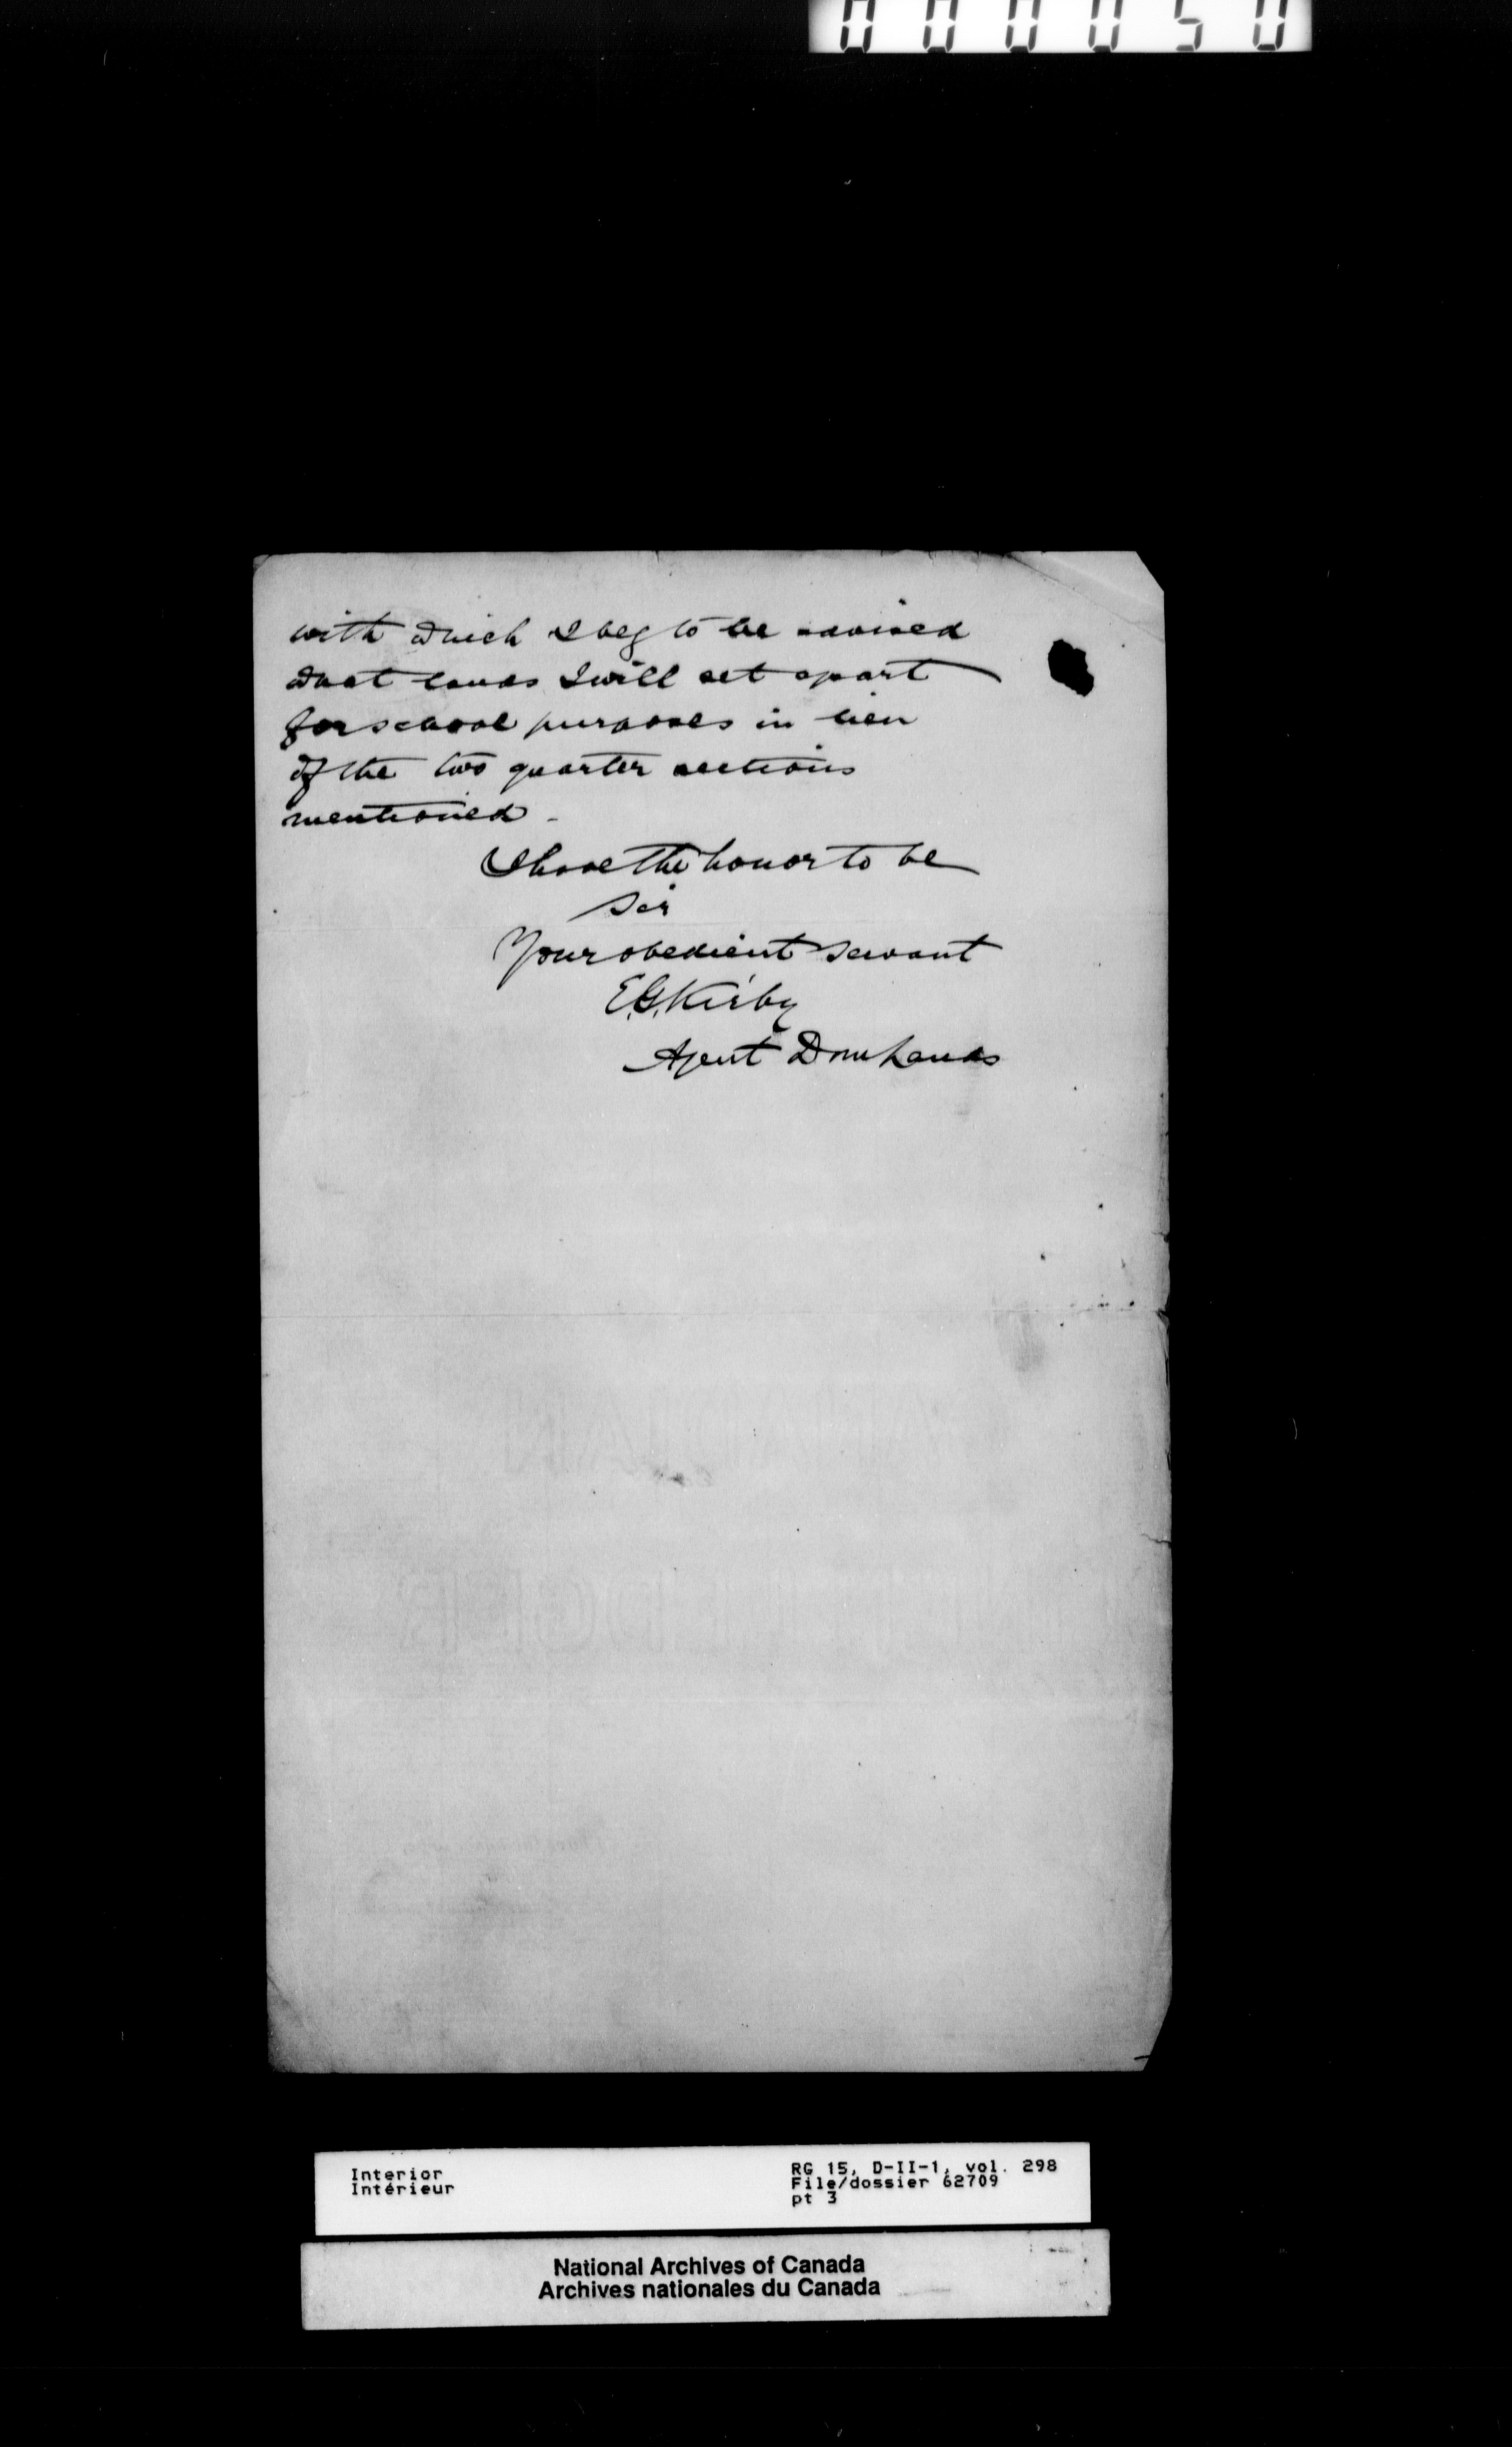 000050
with which I beg to be advised
what lands I will set apart
for school purposes in lieu
of the two quarter sections
mentioned -
I have the honor to be
Sir
Your obedient servant
E.G. Kirby
Agent Dom Lands
Interior
Intérieur
RG 15, D-II-1, vol. 298
File/dossier 62709
pt 3
National Archives of Canada
Archives nationales du Canada